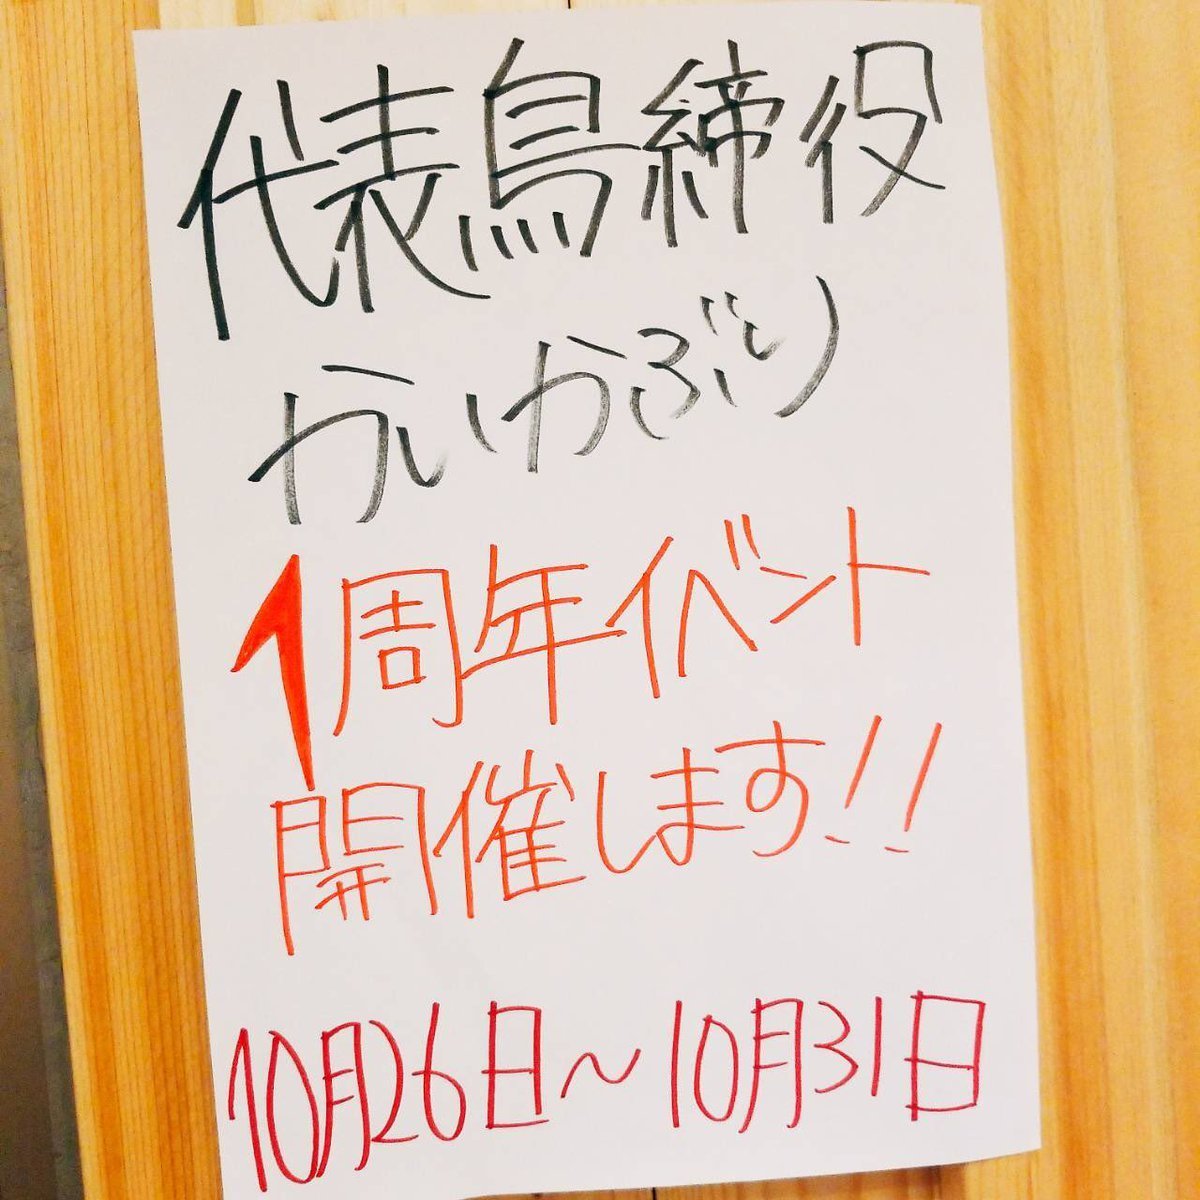 代表鳥締役
かいかぶり
1周年イベント
開催します!!
10月26日~10月31日